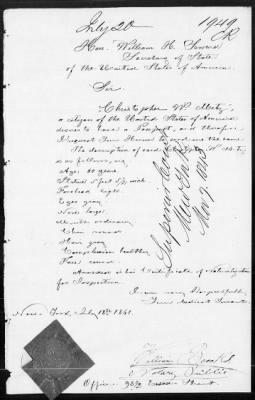 July 20
1949
Hon. William H. Seward
Secretary of State
of the United States of America
Sir
Christopher W.
a citizen of the United States of America
desires to have a Passport, and therefore
I request your Honor to send me the same.
The description of said Christopher W.
is as follows, viz
Age 60 years
Stature 5 feet 6½ inch
Forehead high
Eyes gray
Nose large
Mouth ordinary
Chin round
Hair gray
Complexion healthy
Face oval.
Annexed is his Certificate of Naturalization
for Inspection
I am very Respectfully
Your obedient Servant
New York July 18th 1861.
William
Notary Public
Office Street
Supreme Court
New York